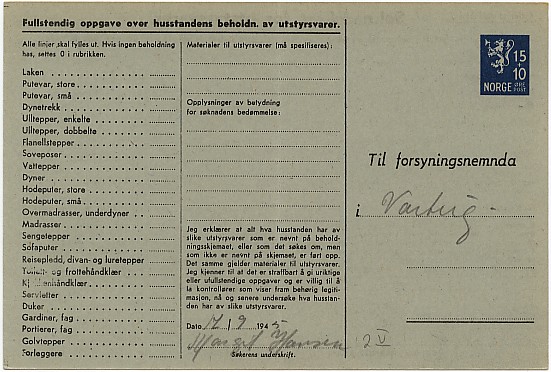 Fullstendig oppgave over husstandens beholdn. av utstyrsvarer.
Alle linjer skal fylles ut. Hvis ingen beholdning
has, settes 0 i rubrikken.
Laken
Putevar, store
Putevar, små
Dynetrekk
Ulltepper, enkelte
Ulltepper, dobbelte
Flanellstepper
Soveposer
Vattepper
Dyner
Hodeputer, store
Hodeputer, små
Overmadrasser, underdyner
Madrasser
Sengetepper
Sofaputer
Reisepledd, divan- og luretepper
Toilett- og frottehåndklær
Kjøkkenhåndklær
Servietter
Duker
Gardiner, fag
Portierer, fag
Golvtepper
Forleggere
Materialer til utstyrsvarer (må spesifiseres):
Opplysninger av betydning
for søknadens bedømmelse:
Jeg erklærer at alt hva husstanden har av
slike utstyrsvarer som er nevnt på behold-
ningsskjemaet, eller som det søkes om, men
som ikke er nevnt på skjemaet, er ført opp.
Det samme gjelder materialer til utstyrsvarer.
Jeg kjenner til at det er straffbart å gi uriktige
eller ufullstendige oppgaver og er villig til å
la kontrollører som viser fram behørig legiti-
masjon, nå og senere undersøke hva husstan-
den har av slike utstyrsvarer.
Dato 17 / 9 1945
Margit Hansen
Søkerens underskrift.
15
+
10
NORGE ØRE
Til forsyningsnemnda
i